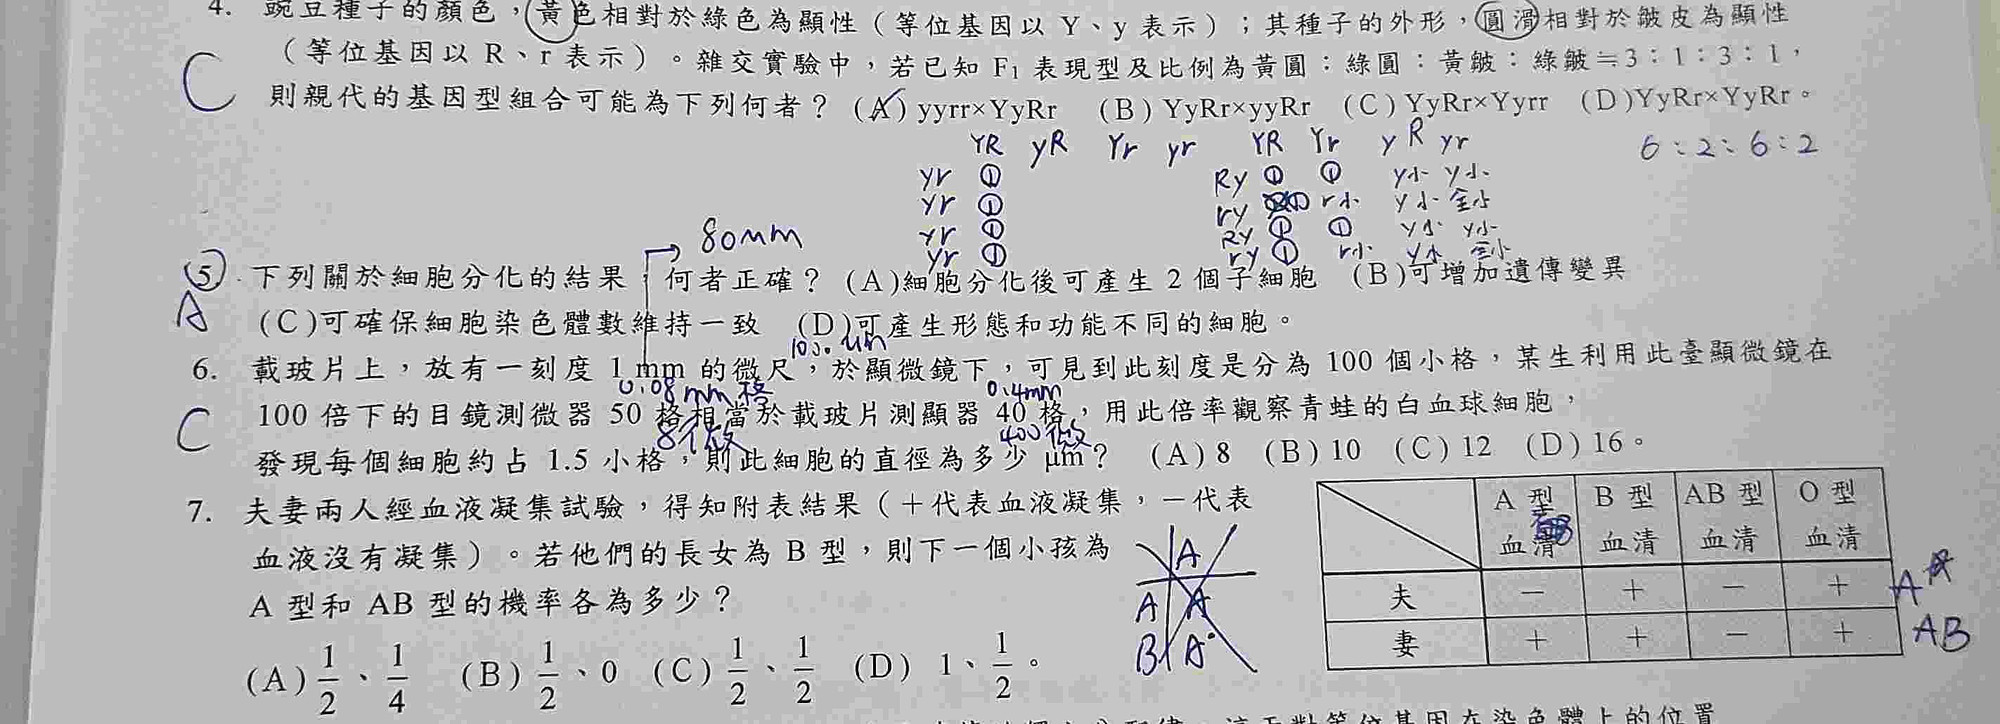 4. 豌豆種子的顏色，黃色相對於綠色為顯性（等位基因以 Y、y 表示）；其種子的外形，圓滑相對於皺皮為顯性
C （等位基因以 R、r 表示）。雜交實驗中，若已知 F₁ 表現型及比例為黃圓：綠圓：黃皺：綠皺≒3：1：3：1，
則親代的基因型組合可能為下列何者？ (A) yyrr×YyRr (B) YyRr×yyRr (C) YyRr×Yyrr (D)YyRr×YyRr。
YR yR Yr yr YR Yr yR yr 6:2:6:2
yr ① Ry ① ① y小 y小
yr ① ry ① r小 y小 全小
yr ① Ry ① ① y小 y小
yr ① ry ① r小 y小 全小
80mm
5. 下列關於細胞分化的結果，何者正確？ (A)細胞分化後可產生 2 個子細胞 (B)可增加遺傳變異
A (C)可確保細胞染色體數維持一致 (D)可產生形態和功能不同的細胞。
6. 載玻片上，放有一刻度 1 mm 的微尺，於顯微鏡下，可見到此刻度是分為 100 個小格，某生利用此臺顯微鏡在
0.08mm 格 0.4mm
C 100 倍下的目鏡測微器 50 格相當於載玻片測顯器 40 格，用此倍率觀察青蛙的白血球細胞，
8微 400微
發現每個細胞約占 1.5 小格，則此細胞的直徑為多少 μm？ (A) 8 (B) 10 (C) 12 (D) 16。
7. 夫妻兩人經血液凝集試驗，得知附表結果（＋代表血液凝集，－代表
血液沒有凝集）。若他們的長女為 B 型，則下一個小孩為
A 型和 AB 型的機率各為多少？
(A) 1/2、1/4 (B) 1/2、0 (C) 1/2、1/2 (D) 1、1/2。
A
A A
B A
A 型血清 B 型血清 AB 型血清 O 型血清
夫 － ＋ － ＋ A
妻 ＋ ＋ － ＋ AB